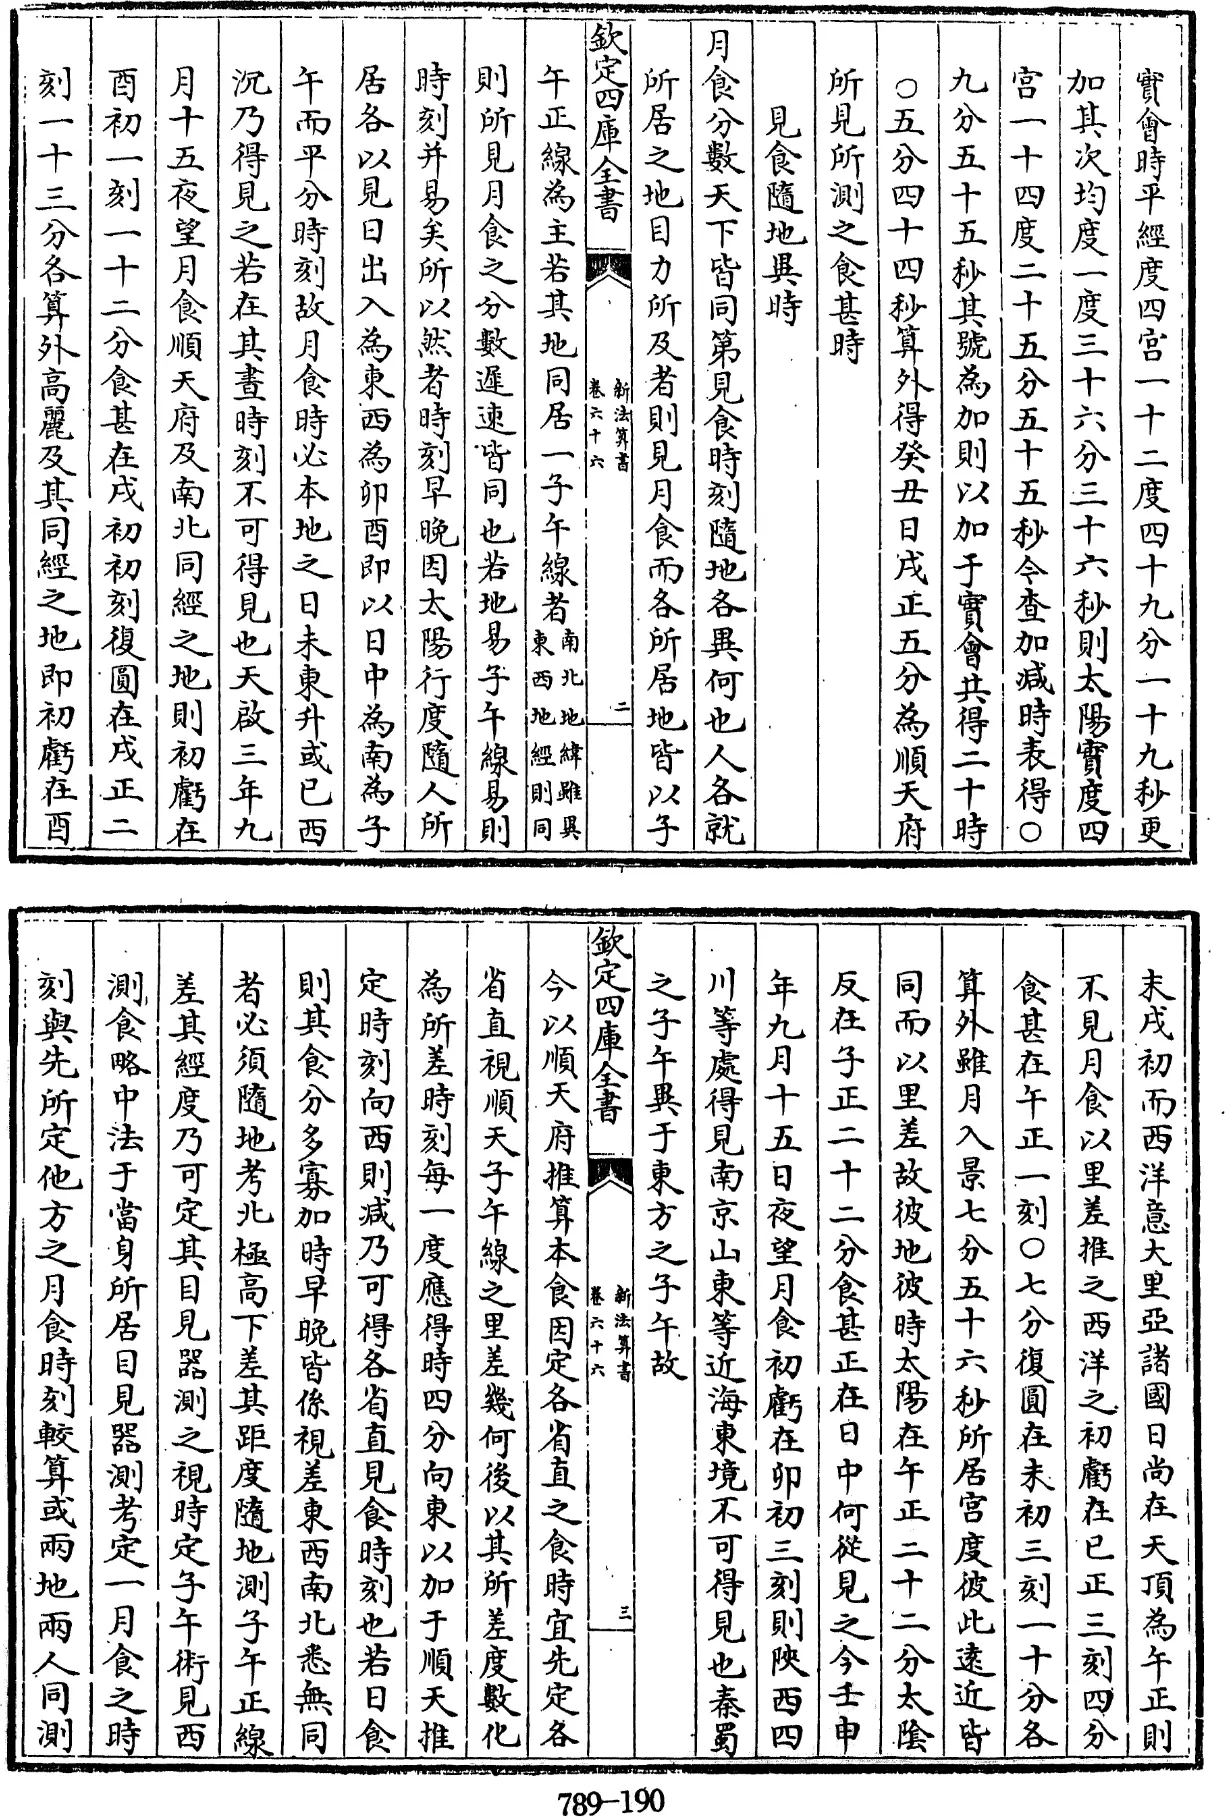 實會時平經度四宮一十二度四十九分一十九秒更
加其次均度一度三十六分三十六秒則太陽實度四
宮一十四度二十五分五十五秒今查加減時表得〇
九分五十五秒其號為加則以加于實會共得二十時
〇五分四十四秒算外得癸丑日戌正五分為順天府
所見所測之食甚時
見食隨地異時
月食分數天下皆同第見食時刻隨地各異何也人各就
所居之地目力所及者則見月食而各所居地皆以子
欽定四庫全書
新法算書
卷六十六
二
午正線為主若其地同居一子午線者南北地緯雖異
東西地經則同
則所見月食之分數遲速皆同也若地易子午線易則
時刻并易矣所以然者時刻早晚因太陽行度隨人所
居各以見日出入為東西為卯酉即以日中為南為子
午而平分時刻故月食時必本地之日未東升或已西
沉乃得見之若在其晝時刻不可得見也天啟三年九
月十五夜望月食順天府及南北同經之地則初虧在
酉初一刻一十二分食甚在戌初初刻復圓在戌正二
刻一十三分各算外高麗及其同經之地即初虧在酉
末戌初而西洋意大里亞諸國日尚在天頂為午正則
不見月食以里差推之西洋之初虧在已正三刻四分
食甚在午正一刻〇七分復圓在未初三刻一十分各
算外雖月入景七分五十六秒所居宮度彼此遠近皆
同而以里差故彼地彼時太陽在午正二十二分太陰
反在子正二十二分食甚正在日中何從見之今壬申
年九月十五日夜望月食初虧在卯初三刻則陝西四
川等處得見南京山東等近海東境不可得見也秦蜀
之子午異于東方之子午故
欽定四庫全書
新法算書
卷六十六
三
今以順天府推算本食因定各省直之食時宜先定各
省直視順天子午線之里差幾何後以其所差度數化
為所差時刻每一度應得時四分向東以加于順天推
定時刻向西則減乃可得各省直見食時刻也若日食
則其食分多寡加時早晚皆係視差東西南北悉無同
者必須隨地考北極高下差其距度隨地測子午正線
差其經度乃可定其目見器測之視時定子午術見西
測食略中法于當身所居目見器測考定一月食之時
刻與先所定他方之月食時刻較算或兩地兩人同測
789-190